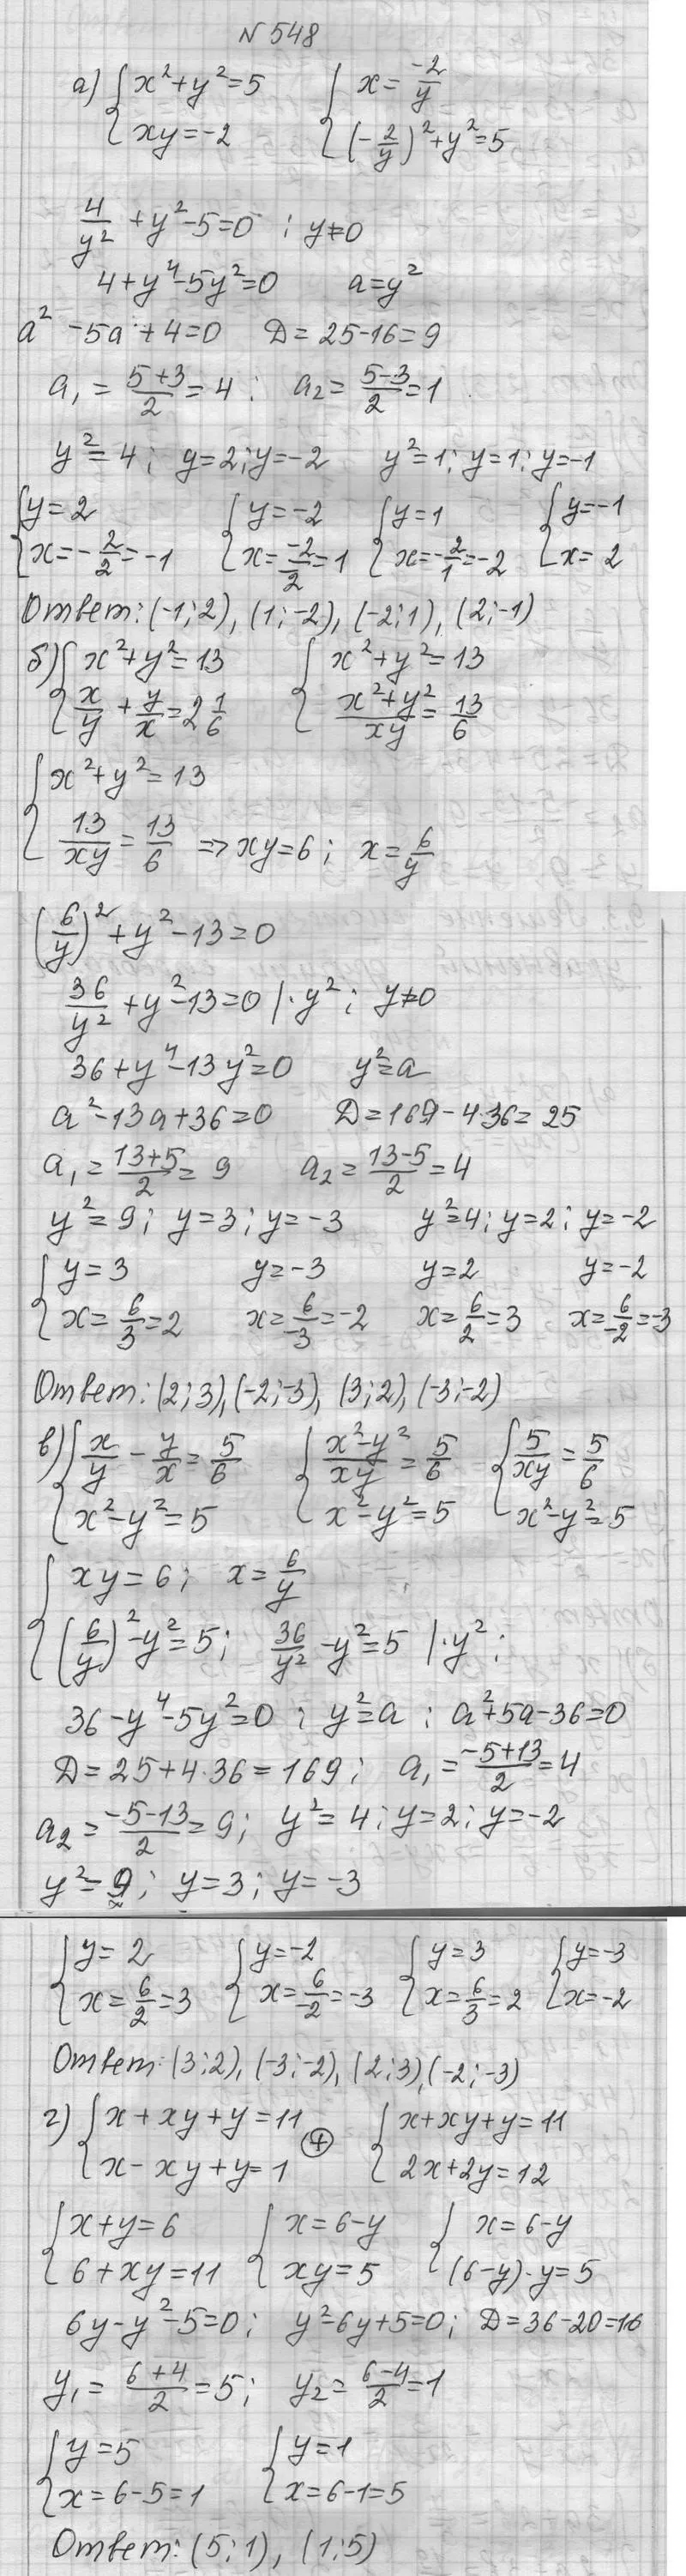 N 548
а) { x²+y²=5   { x=-2/y
{ xy=-2   { (-2/y)²+y²=5
4/y² +y²-5=0 ; y≠0
4+y⁴-5y²=0   a=y²
a² -5a+4=0   D=25-16=9
a₁ = (5+3)/2 = 4 ;   a₂ = (5-3)/2 = 1
y²=4; y=2; y=-2   y²=1; y=1; y=-1
{ y=2   { y=-2   { y=1   { y=-1
{ x=-2/2=-1   { x=-2/-2=1   { x=-2/1=-2   { x=2
Ответ: (-1;2), (1;-2), (-2;1), (2;-1)
б) { x²+y²=13   { x²+y²=13
{ x/y + y/x = 2 1/6   { (x²+y²)/xy = 13/6
{ x²+y²=13
{ 13/xy = 13/6 => xy=6; x=6/y
(6/y)²+y²-13=0
36/y² +y²-13=0 |·y² ; y≠0
36+y⁴-13y²=0   y²=a
a²-13a+36=0   D=169-4·36=25
a₁ = (13+5)/2 = 9   a₂ = (13-5)/2 = 4
y²=9; y=3; y=-3   y²=4; y=2; y=-2
{ y=3   y=-3   y=2   y=-2
{ x=6/3=2   x=6/-3=-2   x=6/2=3   x=6/-2=-3
Ответ: (2;3), (-2;-3), (3;2), (-3;-2)
в) { x/y - y/x = 5/6   { (x²-y²)/xy = 5/6   { 5/xy = 5/6
{ x²-y²=5   { x²-y²=5   { x²-y²=5
{ xy=6; x=6/y
{ (6/y)²-y²=5; 36/y² -y²=5 |·y²;
36-y⁴-5y²=0 ; y²=a ; a²+5a-36=0
D=25+4·36=169; a₁ = (-5+13)/2 = 4
a₂ = (-5-13)/2 = 9; y²=4; y=2; y=-2
y²=9; y=3; y=-3
{ y=2   { y=-2   { y=3   { y=-3
{ x=6/2=3   { x=6/-2=-3   { x=6/3=2   { x=-2
Ответ: (3;2), (-3;-2), (2;3), (-2;-3)
г) { x+xy+y=11   { x+xy+y=11
{ x-xy+y=1 ⊕   { 2x+2y=12
{ x+y=6   { x=6-y   { x=6-y
{ 6+xy=11   { xy=5   { (6-y)·y=5
6y-y²-5=0; y²-6y+5=0; D=36-20=16
y₁ = (6+4)/2 = 5; y₂ = (6-4)/2 = 1
{ y=5   { y=1
{ x=6-5=1   { x=6-1=5
Ответ: (5;1), (1;5)